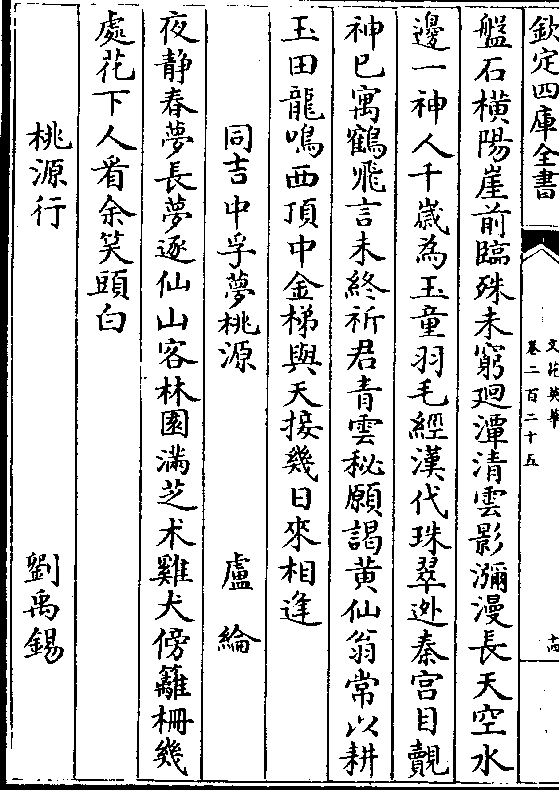 欽定四庫全書
文苑英華
卷二百二十五
十四
盤石橫陽崖前臨殊未窮迴潭清雲影瀰漫長天空水
邊一神人千歲為玉童羽毛經漢代珠翠迯秦宫目覩
神已寓鶴飛言未終祈君青雲秘願謁黄仙翁常以耕
玉田龍鳴西頂中金梯與天接幾日來相逢
同吉中孚夢桃源 盧綸
夜静春夢長夢逐仙山客林園滿芝术雞犬傍籬柵幾
處花下人看余笑頭白
桃源行 劉禹錫